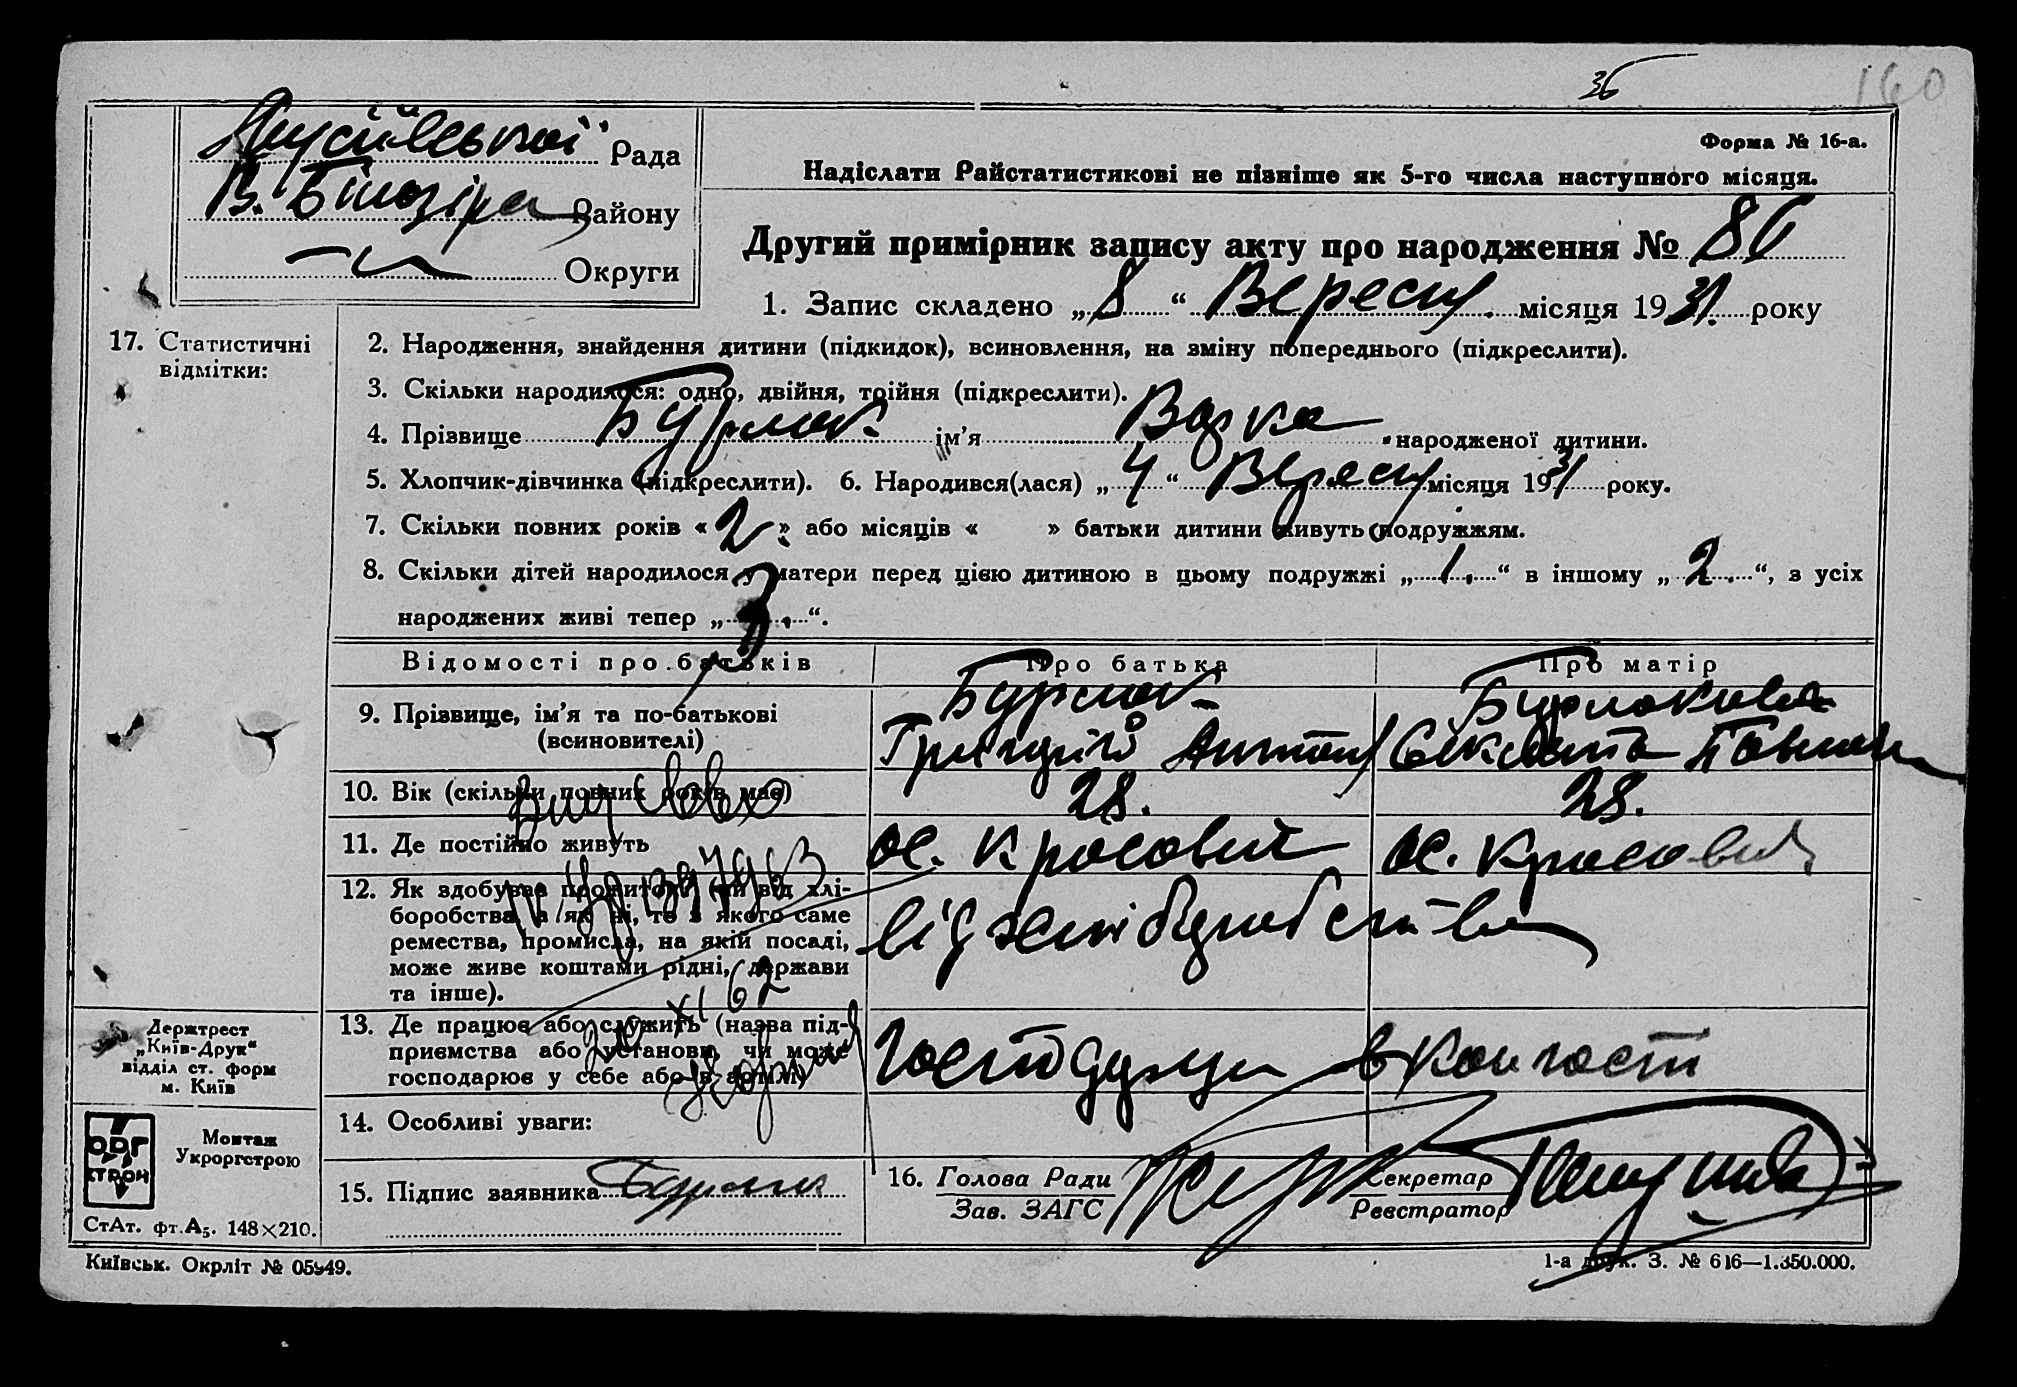 36
160
Рада
В. Білозірка Району
Округи
Форма № 16-а.
Надіслати Райстатистикові не пізніше як 5-го числа наступного місяця.
Другий примірник запису акту про народження № 86
1. Запис складено „8“ Вересня місяця 1931. року
17. Статистичні
відмітки:
2. Народження, знайдення дитини (підкидок), всиновлення, на зміну попереднього (підкреслити).
3. Скільки народилося: одно, двійня, трійня (підкреслити).
4. Прізвище Бурлак ім’я Варка народженої дитини.
5. Хлопчик-дівчинка (підкреслити). 6. Народився(лася) „4“ Вересня місяця 1931 року.
7. Скільки повних років «2» або місяців « » батьки дитини живуть подружжям.
8. Скільки дітей народилося у матери перед цією дитиною в цьому подружжі „1.“ в іншому „2.“, з усіх
народжених живі тепер „3.“.
Відомості про батьків Про батька Про матір
9. Прізвище, ім’я та по-батькові
(всиновителі)
Бурлак
Григорій Антон
Бурлакова
Павлов
10. Вік (скільки повних років має) 28. 28.
11. Де постійно живуть
ос. Красовий ос. Красовий
12. Як здобуває прожиток (чи від хлі-
боробства, а як ні, то з якого саме
ремества, промисла, на якій посаді,
може живе коштами рідні, держави
та інше).
від хліборобства
13. Де працює або служить (назва під-
приємства або установи, чи може
господарює у себе або в артілі)
20 XI 62
в колгосп
14. Особливі уваги:
15. Підпис заявника Бурлак
16. Голова Ради
Зав. ЗАГС
Секретар
Реєстратор
Держтрест
„Київ-Друк“
відділ ст. форм
м. Київ
ОРГ
СТРОЙ
Монтаж
Укроргстрою
СтАт. фт.А₅. 148×210.
Київськ. Окрліт № 05949.
1-а друк. З. № 616—1.350.000.